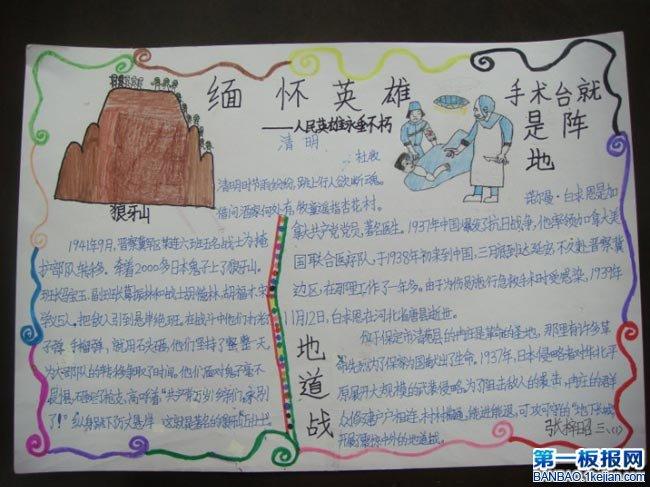 缅怀英雄
——人民英雄永垂不朽
清明
杜牧
清明时节雨纷纷,路上行人欲断魂。
借问酒家何处有,牧童遥指杏花村。
狼牙山
1941年9月,晋察冀军区某连六班五名战士为掩
护部队转移。牵着2000多日本鬼子上了狼牙山。
班长马宝玉、副班长葛振林和战士胡德林、胡福才、宋
学义5人。把敌人引到悬岸绝班。在战斗中他们打光了
子弹、手榴弹,就用石头砸,他们坚持了整整一天,
为大部队的转移争取了时间。他们面对鬼子毫不
畏惧,砸毁了枪支,高呼着"共产党万岁!乡亲们永别
了!"纵身跳下万丈悬岸
手术台就
是阵
地
诺尔曼·白求恩是加
拿大共产党党员,著名医生。1937年中国爆发了抗日战争,他率领加拿大美
国联合医疗队,于1938年初来到中国,三月底到达延安,不久赴晋察冀
边区,在那里工作了一年多。由于为伤员施行急救手术时受感染,1939年
11月12日,白求恩在河北省唐县逝世。
地道战
保定市清苑县的冉庄是革命的圣地,那里有许多革
命先烈为了保家为国献出了生命。1937年,日本侵略者对华北平
原展开大规模的武装侵略。为了阻击敌人的袭击,冉庄的群
众修建户户相连,村村相通,能进能退,可攻可守的"地下长城"
开展了惊中外的地道战。
三、(1)
第一板报网
BANBAO.1kejian.com